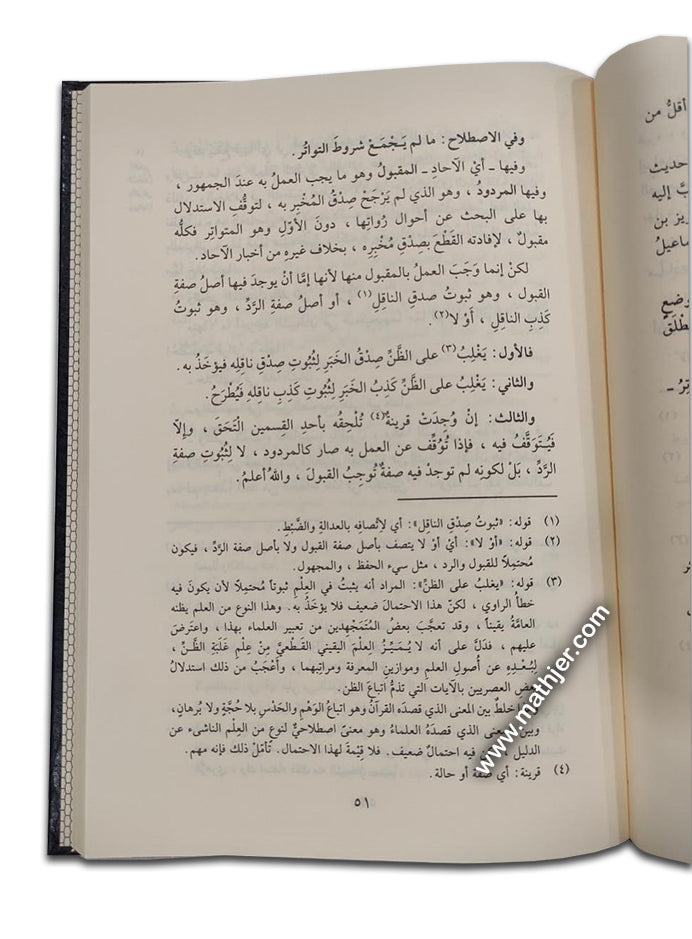 وفي الاصطلاح: ما لم يَجْمَعْ شروطَ التواتُر.
وفيها ـ أيْ الآحادِ ـ المقبولُ وهو ما يجب العملُ به عندَ الجمهور،
وفيها المردودُ، وهو الذي لم يَرْجَحْ صِدْقُ المُخْبِر به، لتوقُّفِ الاستدلال
بها على البحث عن أحوال رُواتِها، دونَ الأوّلِ وهو المتواتِر فكلُّه
مقبولٌ، لإفادته القَطْعَ بصِدْقِ مُخْبِرِه، بخلاف غيرِه من أخبار الآحاد.
لكنْ إنما وَجَبَ العملُ بالمقبول منها لأنها إمَّا أنْ يوجدَ فيها أصلُ صفةِ
القبول، وهو ثبوتُ صدقِ الناقِل(١)، أو أصلُ صفةِ الرَّدِّ، وهو ثبوتُ
كَذِبِ الناقِلِ، أوْ لا(٢).
فالأول: يَغْلِبُ(٣) على الظَّنِّ صِدْقُ الخَبَرِ لِثُبوتِ صِدْقِ ناقِلِه فيؤخَذُ به.
والثاني: يَغْلِبُ على الظَّنِّ كَذِبُ الخَبَرِ لِثُبوتِ كَذِبِ ناقلِه فَيُطْرَحُ.
والثالث: إنْ وُجِدَتْ قرينةٌ(٤) تُلْحِقُه بأحدِ القِسمينِ الْتَحَقَ، وإلاّ
فَيُتَوَقَّفُ فيه، فإذا تُوُقِّف عن العمل به صار كالمردود، لا لِثُبوتِ صفةِ
الرَّدِّ، بَلْ لكونِه لم توجدْ فيه صفةٌ تُوجِبُ القبولَ، واللهُ أعلمُ.
(١) قوله: «ثبوتُ صِدْقِ الناقِل»: أي لاتصافِه بالعدالةِ والضَّبْطِ.
(٢) قوله: «أوْ لا»: أيْ أوْ لا يتصف بأصل صفة القبول ولا بأصل صفة الردّ، فيكون
مُحتمِلاً للقبول والرد، مثل سيء الحفظ، والمجهول.
(٣) قوله: «يغلبُ على الظنِّ»: المراد أنه يثبتُ في العِلْمِ ثبوتاً مُحتمِلاً لأن يكونَ فيه
خطأُ الراوي، لكنّ هذا الاحتمالَ ضعيف فلا يؤخَذُ به. وهذا النوع من العلم يظنه
العامَّةُ يقيناً، وقد تعجَّبَ بعضُ المُتَمَجْهِدين من تعبير العلماء بهذا، واعترَضَ
عليهم، فدَلَّ على أنه لا يُمَيِّزُ العِلْمَ اليقيني القَطْعيَّ مِنْ عِلْمِ غَلَبَةِ الظَّنِّ،
لِبُعْدِهِ عن أُصولِ العلمِ وموازينِ المعرفة ومراتبِهما، وأعْجَبُ من ذلك استدلالُ
بعضِ العصريين بالآيات التي تذمُّ اتباعَ الظن.
خلطٌ بين المعنى الذي قصدَه القرآنُ وهو اتباعُ الوَهْمِ والحَدْسِ بلا حُجَّةٍ ولا بُرهانٍ،
وبينَ المعنى الذي قصدَهُ العلماءُ وهو معنىً اصطلاحيٌّ لنوع من العِلْم الناشىء عن
الدليل، فيه احتمالٌ ضعيف. فلا قِيْمةَ لهذا الاحتمال. تأمّلْ ذلك فإنه مهم.
(٤) قرينة: أي صفة أو حالة.
٥١
أقلُّ من
حديث
بَّ إليه
زيز بن
ماعيلُ
وضعٍ
طْلَقَ
تِرُ ـ
www.mathjer.com